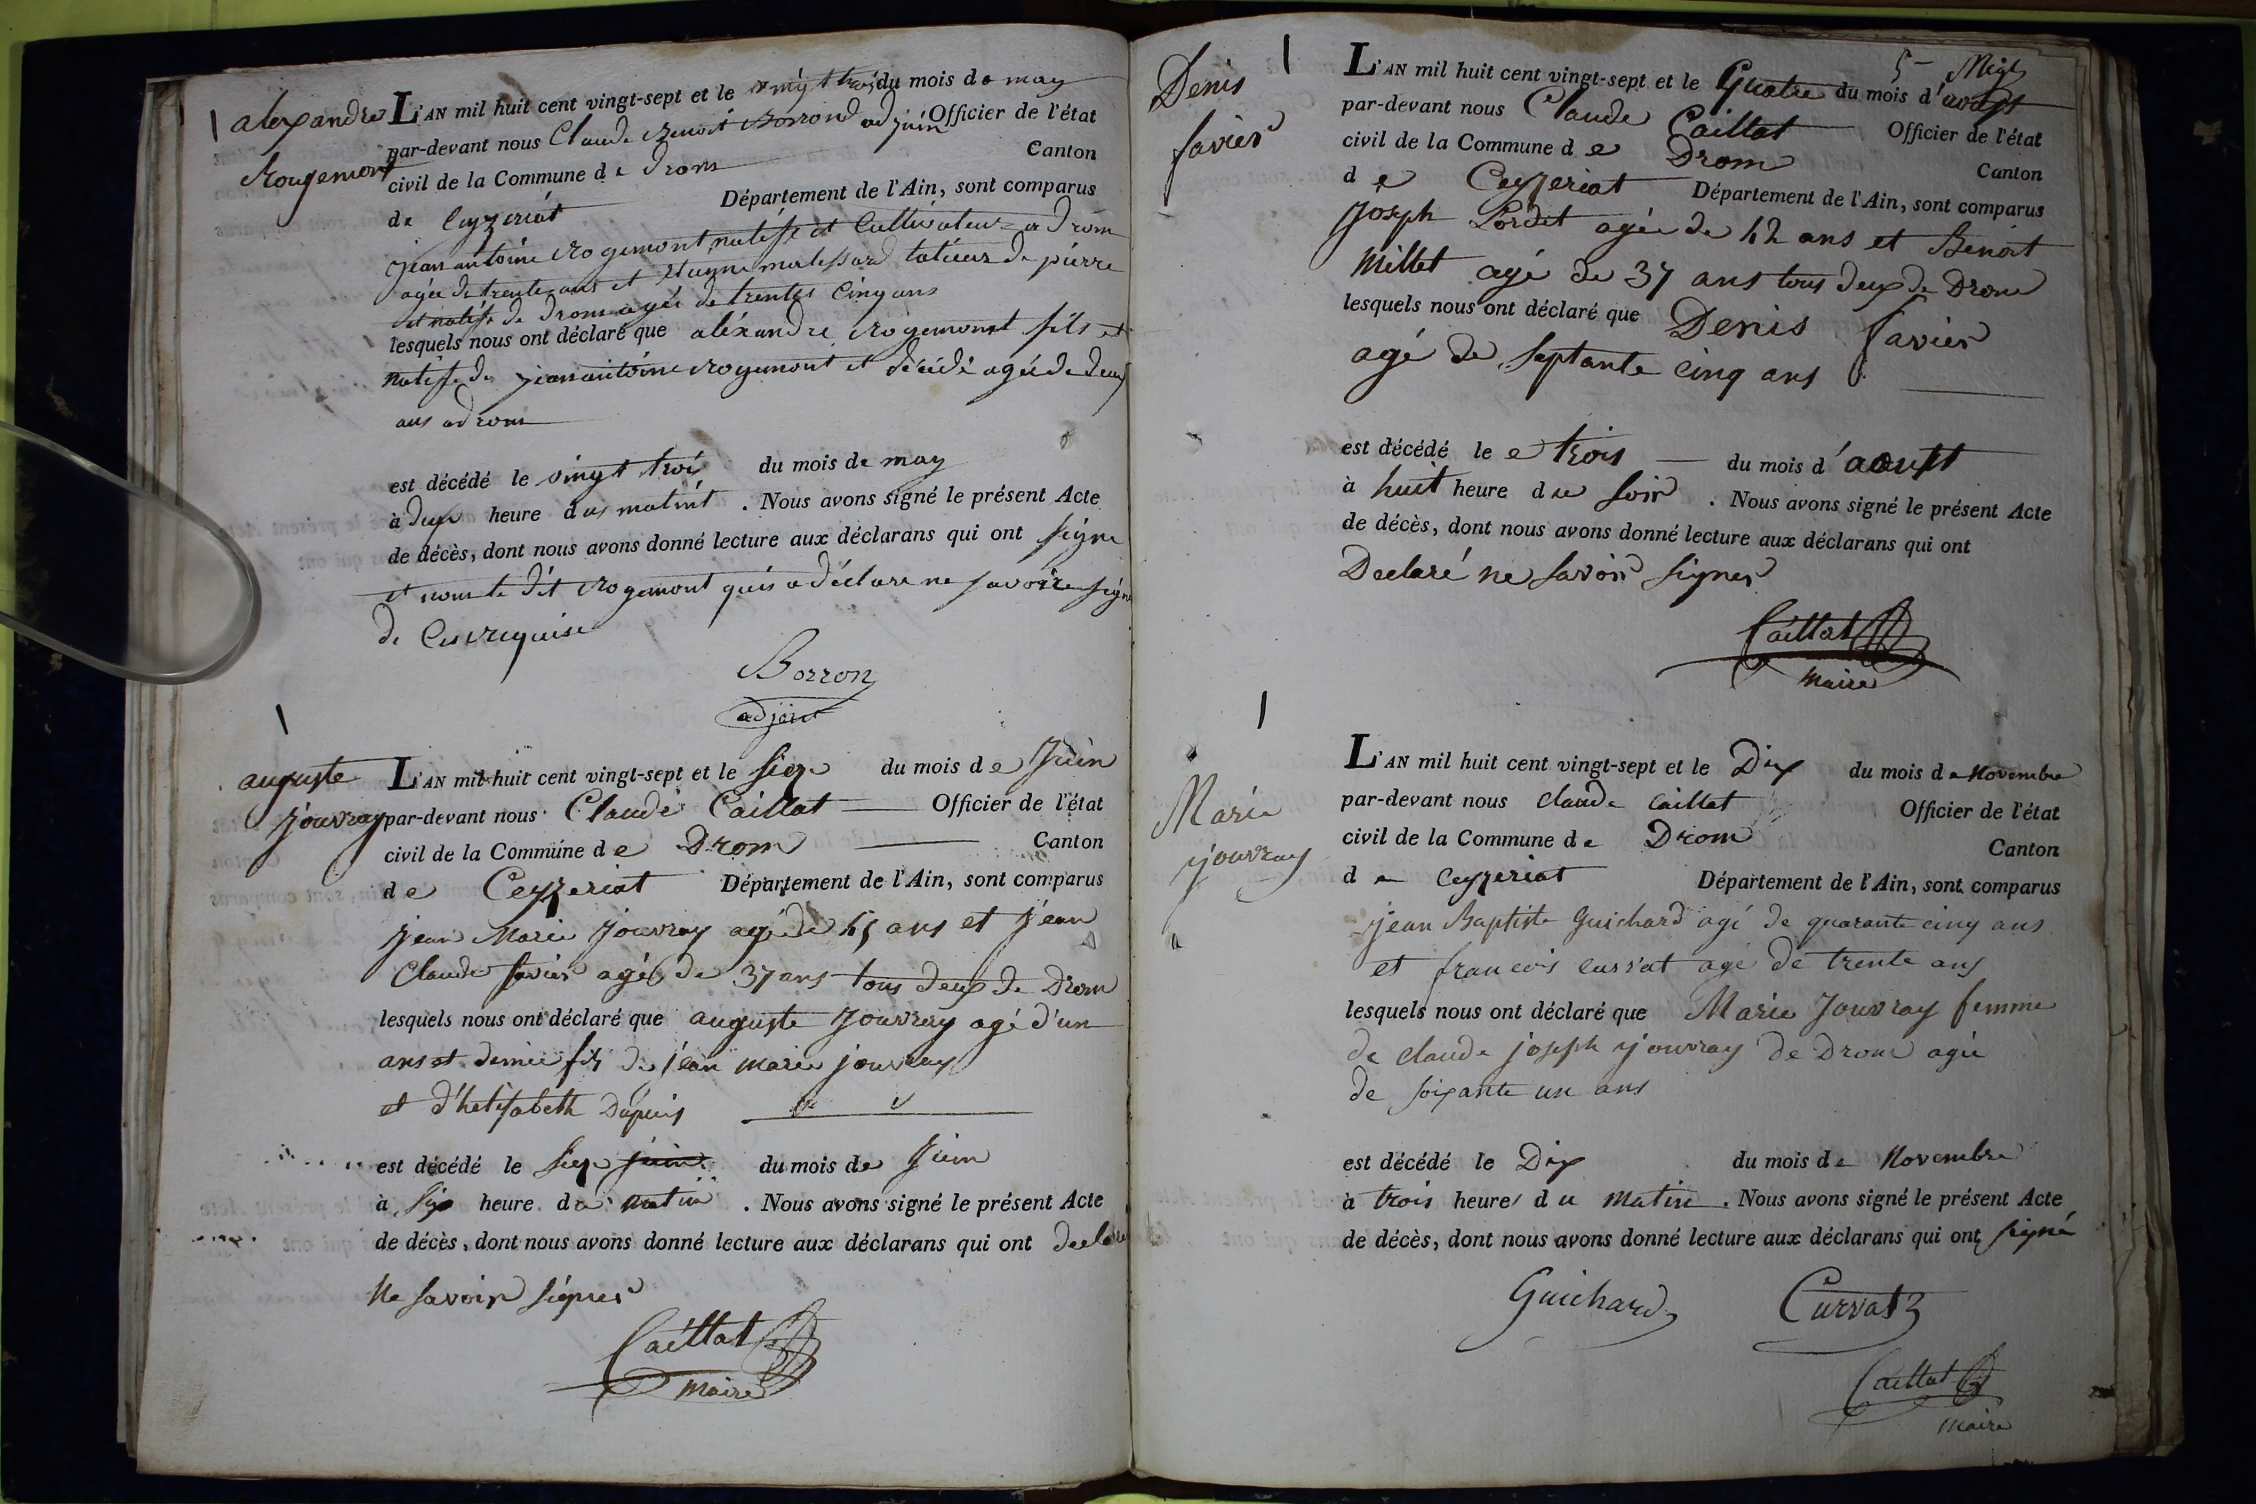 alexandre
Rougemont
L'AN mil huit cent vingt-sept et le vingt trois du mois de may
par-devant nous Claude Benoit Borrond adjuin Officier de l'état
civil de la Commune de Drom Canton
de Ceyzeriát Département de l'Ain, sont comparus
jean antoine rogemont natife et Cultivateur a Drom
agée de trente ans et tatieur de pierre
et natife de Drom agée de trentes Cinq ans
lesquels nous ont déclaré que aléxandre rogemont fils et
natife de jean antoine rogemont et décédé agée de deux
ans a drom
est décédé le vingt troi du mois de may
à deux heure du matint . Nous avons signé le présent Acte
de décès, dont nous avons donné lecture aux déclarans qui ont signe
et nom le dit rogemont quis a déclare ne savoire signe
de Ces requise
Borron
adjoint
auguste
jouvray
L'AN mil-huit cent vingt-sept et le Seize du mois de Juin
par-devant nous Claude Caillat Officier de l'état
civil de la Commune de Drom Canton
de Ceyzeriat Département de l'Ain, sont comparus
jean Marie Jouvray agé de 45 ans et jean
Claude favier agé de 37 ans tous deux de Drom
lesquels nous ont déclaré que auguste Jouvray agé d'un
ans et demie fils de jean marie jouvray
et d'helisabeth Dupuis
est décédé le Seize juin du mois de Juin
à Six heure du matin . Nous avons signé le présent Acte
de décès, dont nous avons donné lecture aux déclarans qui ont declare
Ne savoir signer
Caillat
maire
Denis
favier
L'AN mil huit cent vingt-sept et le Quatre du mois d'aoust
par-devant nous Claude Caillat Officier de l'état
civil de la Commune de Drom Canton
de Ceyzeriat Département de l'Ain, sont comparus
Joseph Pordet agée de 42 ans et Benoit
Millet agé de 37 ans tous deux de Drom
lesquels nous ont déclaré que Denis favier
agé de septante cinq ans
est décédé le e trois du mois d'aoust
à huit heure du soir . Nous avons signé le présent Acte
de décès, dont nous avons donné lecture aux déclarans qui ont
Declaré ne savoir signer
Caillat
maire
Marie
jouvray
L'AN mil huit cent vingt-sept et le Dix du mois de Novembre
par-devant nous Claude Caillat Officier de l'état
civil de la Commune de Drom Canton
de Ceyzeriat Département de l'Ain, sont comparus
jean Baptiste Guichard agé de quarante cinq ans
et francois curvat agé de trente ans
lesquels nous ont déclaré que Marie Jouvray femme
de claude joseph jouvray de Drom agée
de soixante un ans
est décédé le Dix du mois de Novembre
à trois heure du matin . Nous avons signé le présent Acte
de décès, dont nous avons donné lecture aux déclarans qui ont signé
Guichard Curvat
Caillat
maire